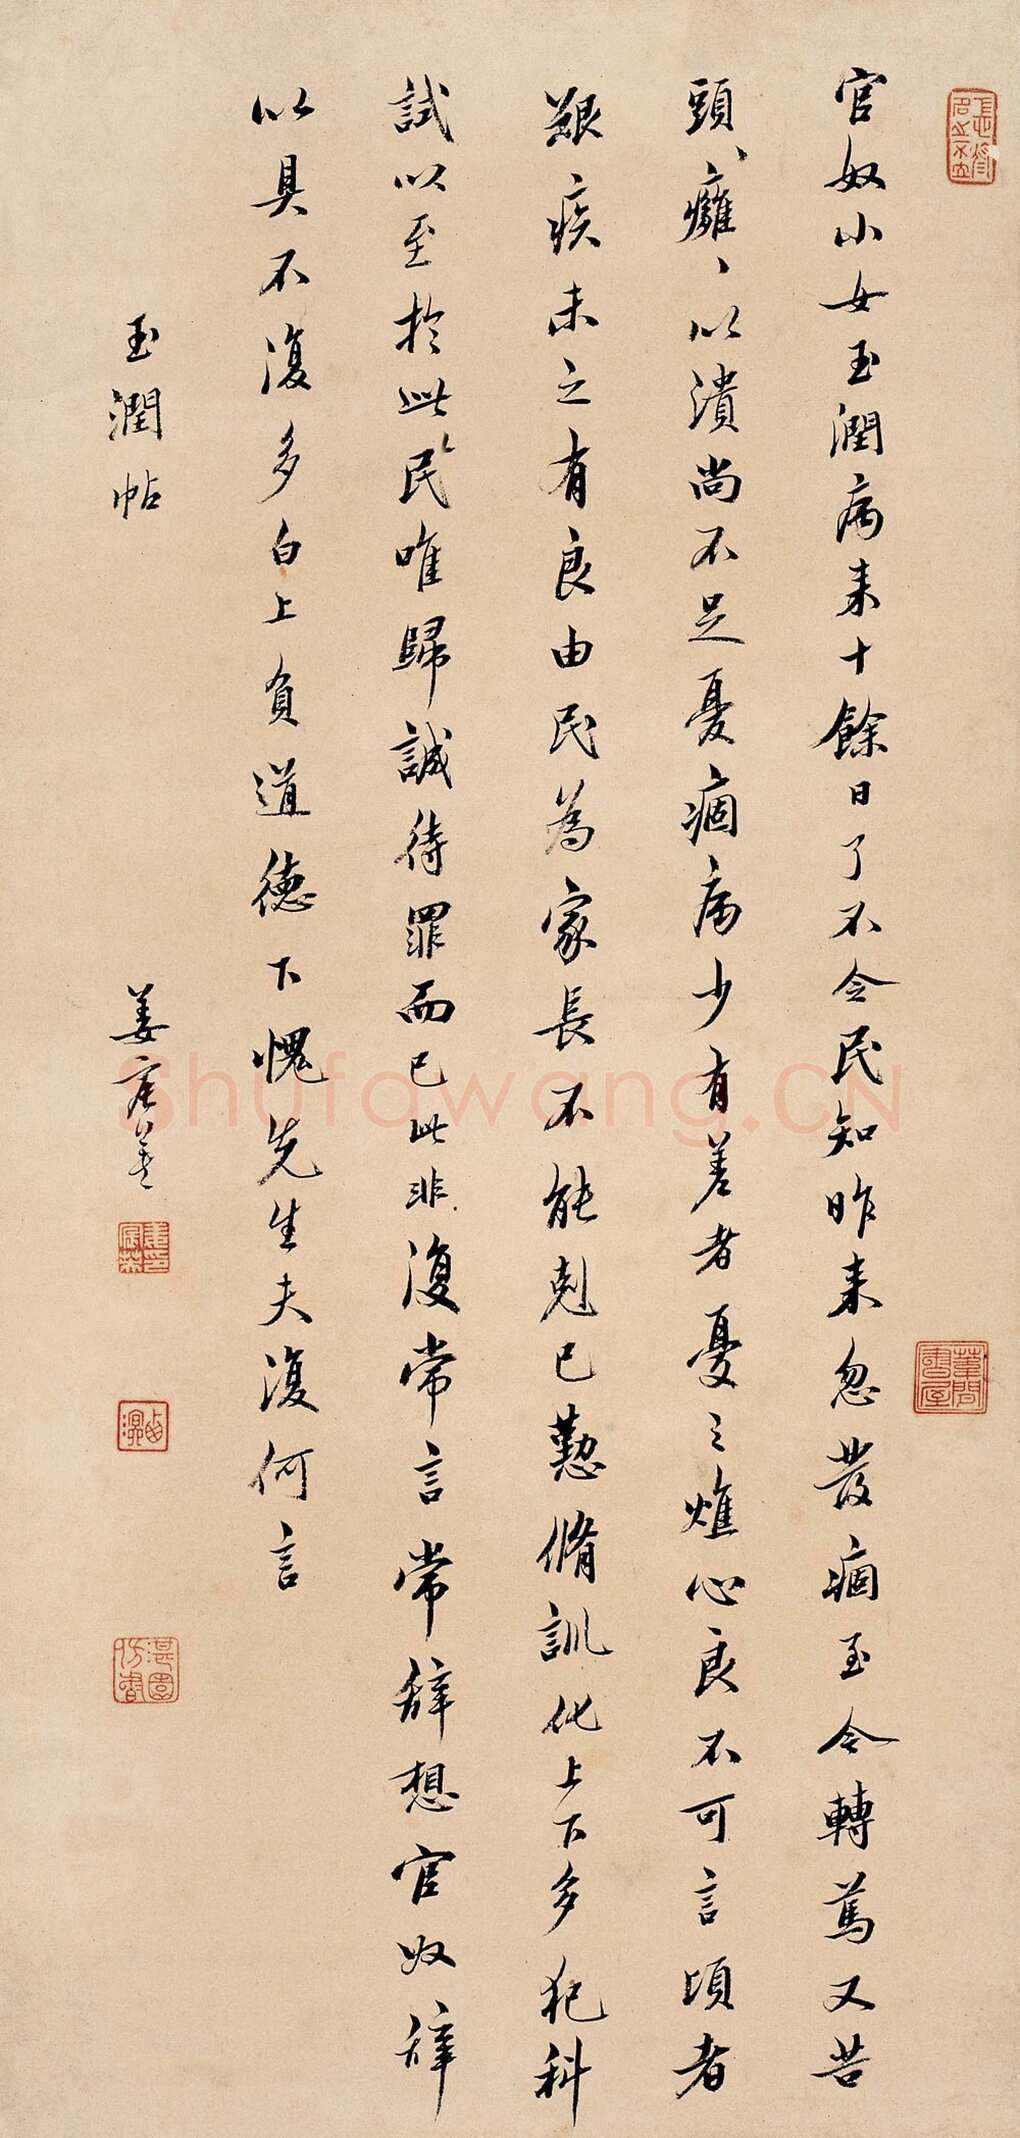 官奴小女玉潤病来十餘日了不令民知昨来忽發痼至今轉篤又苦
頭、癰、以潰尚不足憂痼病少有差者憂之燋心良不可言頃者
艱疾未之有良由民為家長不能剋己懃脩訓化上下多犯科
試以至於此民唯歸誠待罪而已此非復常言常辞想官奴辞
以具不復多白上負道德下愧先生夫復何言
玉潤帖
姜宸英
葦間書屋
Shufawang.CN